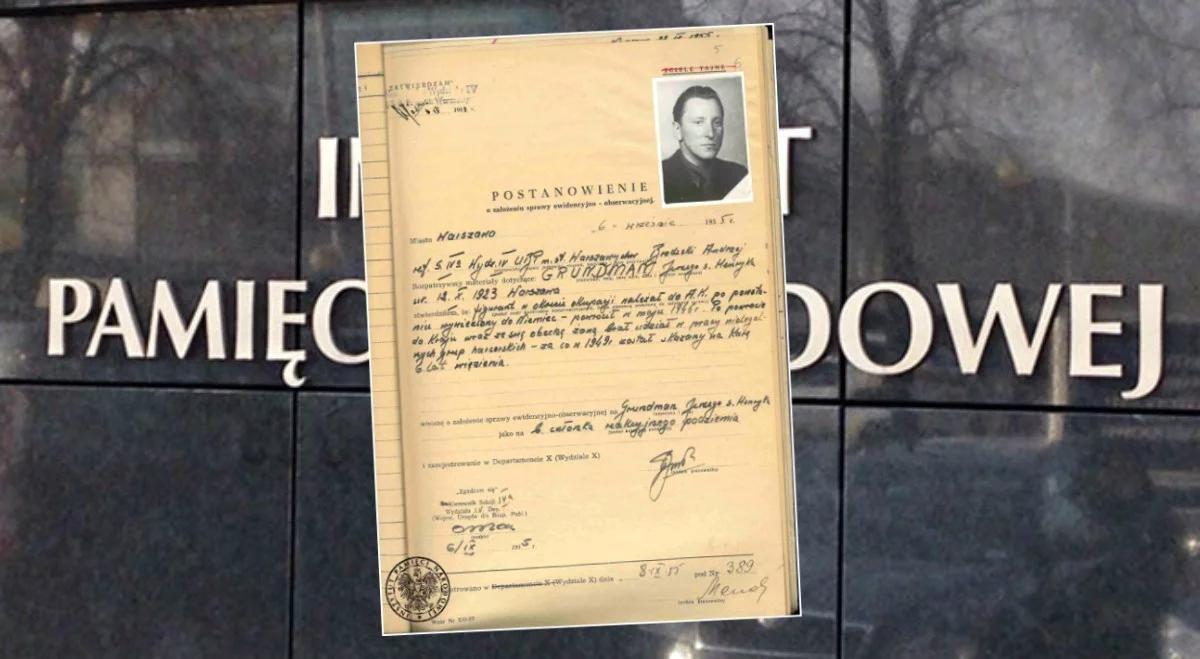 5
ŚCIŚLE TAJNE 6
„ZATWIERDZAM"
IV
POSTANOWIENIE
o założeniu sprawy ewidencyjno - obserwacyjnej.
„6 - września 1955 r.
Miasto Warszawa
ref. S. IVa Wydz. IV UBP m. st. Warszawy chor Brodecki Andrzej
Rozpatrzywszy materiały dotyczące: GRUNDMAN Jerzego s. Henryka
ur. 12. X. 1923 Warszawa
stwierdziłem, że: figurant w okresie okupacji należał do A.K. po powsta-
niu wywieziony do Niemiec - powrócił w maju r. Po powrocie
do Kraju wraz ze swą obecną żoną brał udział w pracy nielegal-
nych grup harcerskich - za co w 1949 r został skazany na karę
6 lat więzienia.
wnoszę o założenie sprawy ewidencyjno-obserwacyjnej na Grundman Jerzego s. Henryka
jako na b. członka reakcyjnego podziemia
i zarejestrowanie w Departamencie X (Wydziale X)
„Zgadzam się"
Kierownik Sekcji IVa
Wydziału IV Dep.
(Wojew. Urzędu d/s Bezp. Publ.)
6/IX 1955 r.
Departamencie X (Wydziale X) dnia 8.IX.55 pod Nr 389
INSTYTUT PAMIĘCI NARODOWEJ
IN T
PAMIĘC DOWEJ